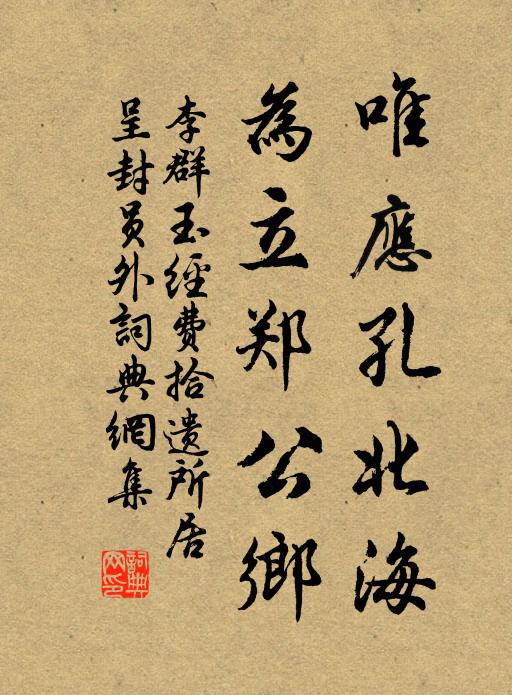 唯應孔北海
為立郑公鄉
李群玉經費拾遗所居
呈封员外詞典網集
詞典网印